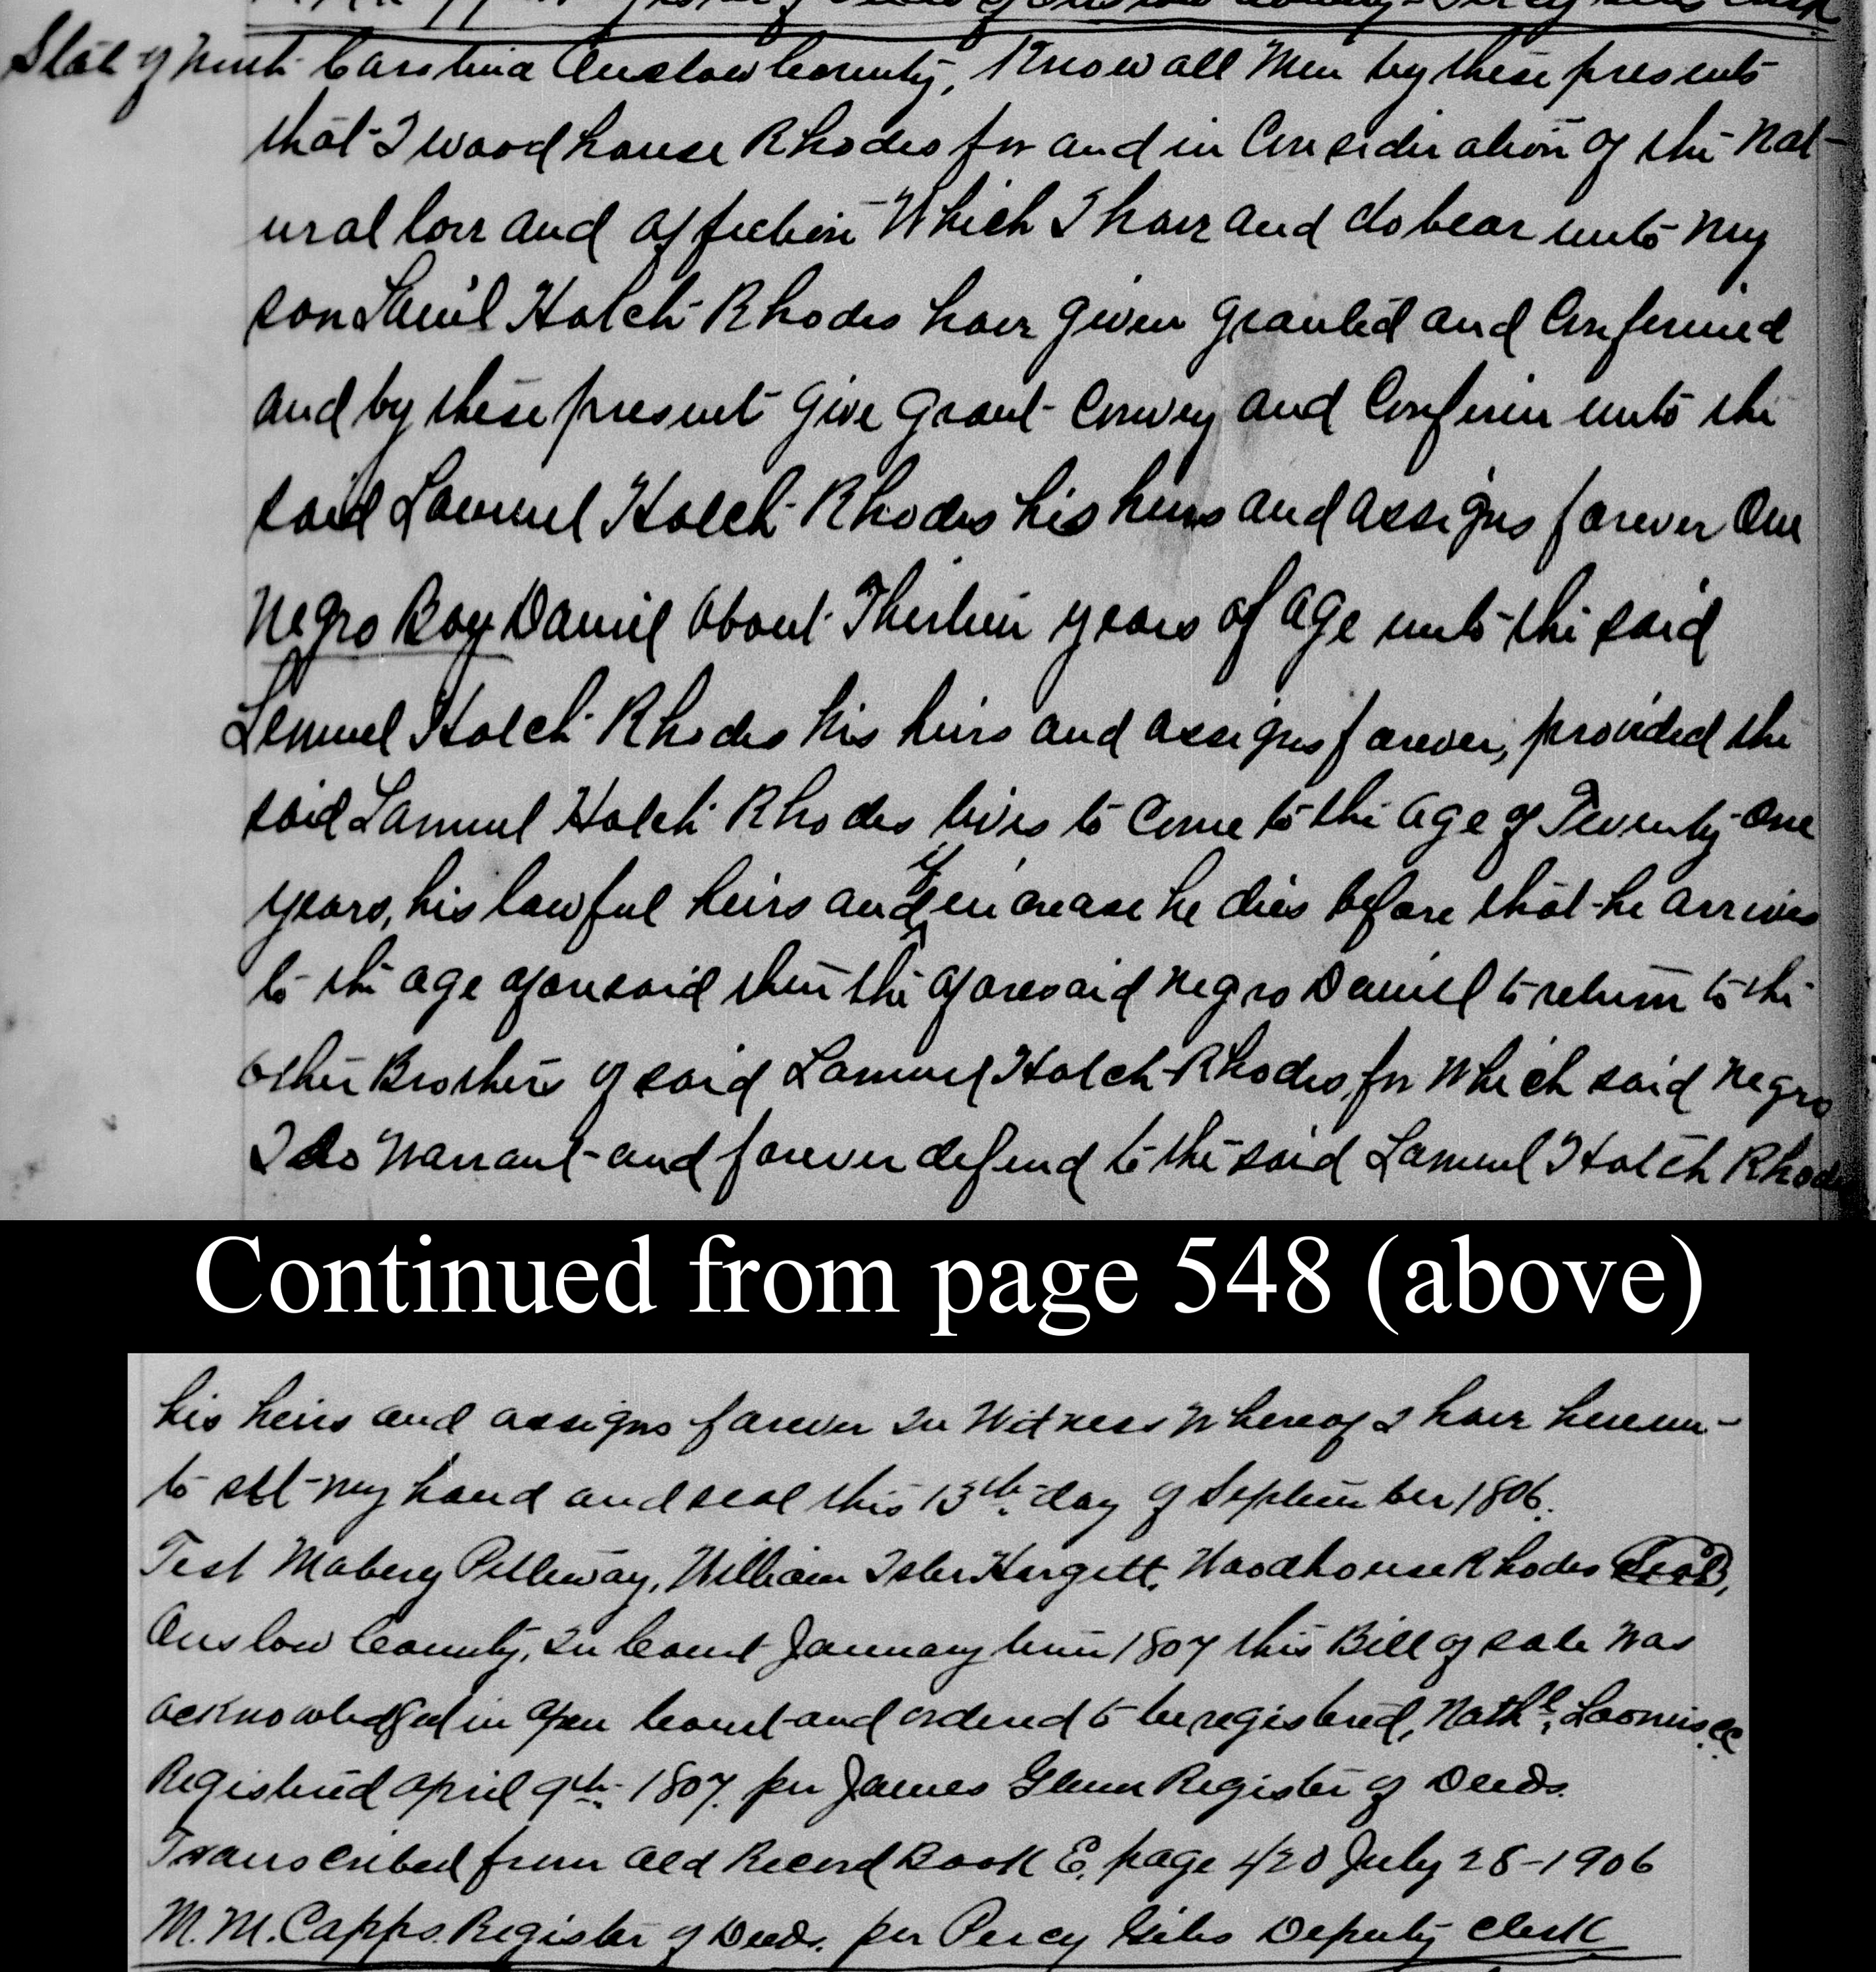 State of North Carolina Onslow County, Know all Men by these presents
that I Woodhouse Rhodes for and in Consideration of the Nat-
ural love and affection Which I have and do bear unto My
son Lamuel Hatch Rhodes have given granted and Confirmed
and by these present Give Grant Convey and Confirm unto the
said Lamuel Hatch Rhodes his heirs and assigns forever One
Negro Boy Daniel About Thirteen years of age unto the said
Lemuel Hatch Rhodes his heirs and assigns forever, provided the
said Lamuel Hatch Rhodes lives to Come to the age of Twenty-One
years, his lawful heirs and if in crease he dies before that he arrives
to the age aforesaid then the aforesaid negro Daniel to return to the
other Brothers of said Lamuel Hatch Rhodes, for Which said Negro
I do Warrant and forever defend to the said Lamuel Hatch Rhodes
Continued from page 548 (above)
his heirs and assigns forever In Witness Whereof I have hereun-
to set my hand and seal this 13th day of September 1806.
Test Mabery Petteway, William Isler Hargett, Woodhouse Rhodes Seal,
Onslow County, In Court January term 1807 this Bill of sale Was
acknowledged in Open Court and ordered to be registered, Nathl, Loomis, CC
Registered April 9th 1807. per James Glenn Register of Deeds.
Transcribed from Old Record Book E, page 420 July 28-1906
M. M. Capps. Register of Deeds. per Percy Giles Deputy Clerk